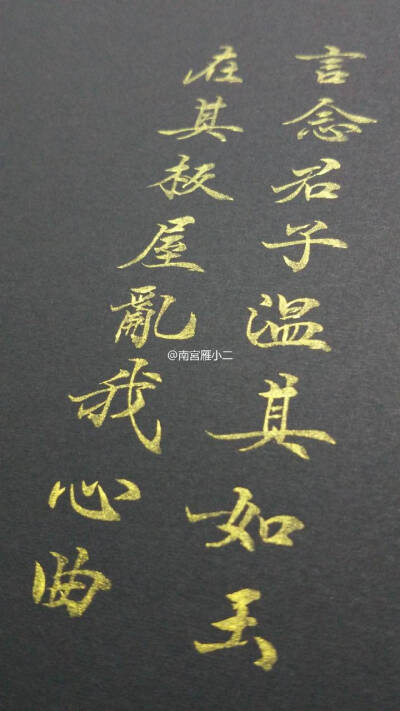 言念君子温其如玉
在其板屋亂我心曲
@南宮雁小二